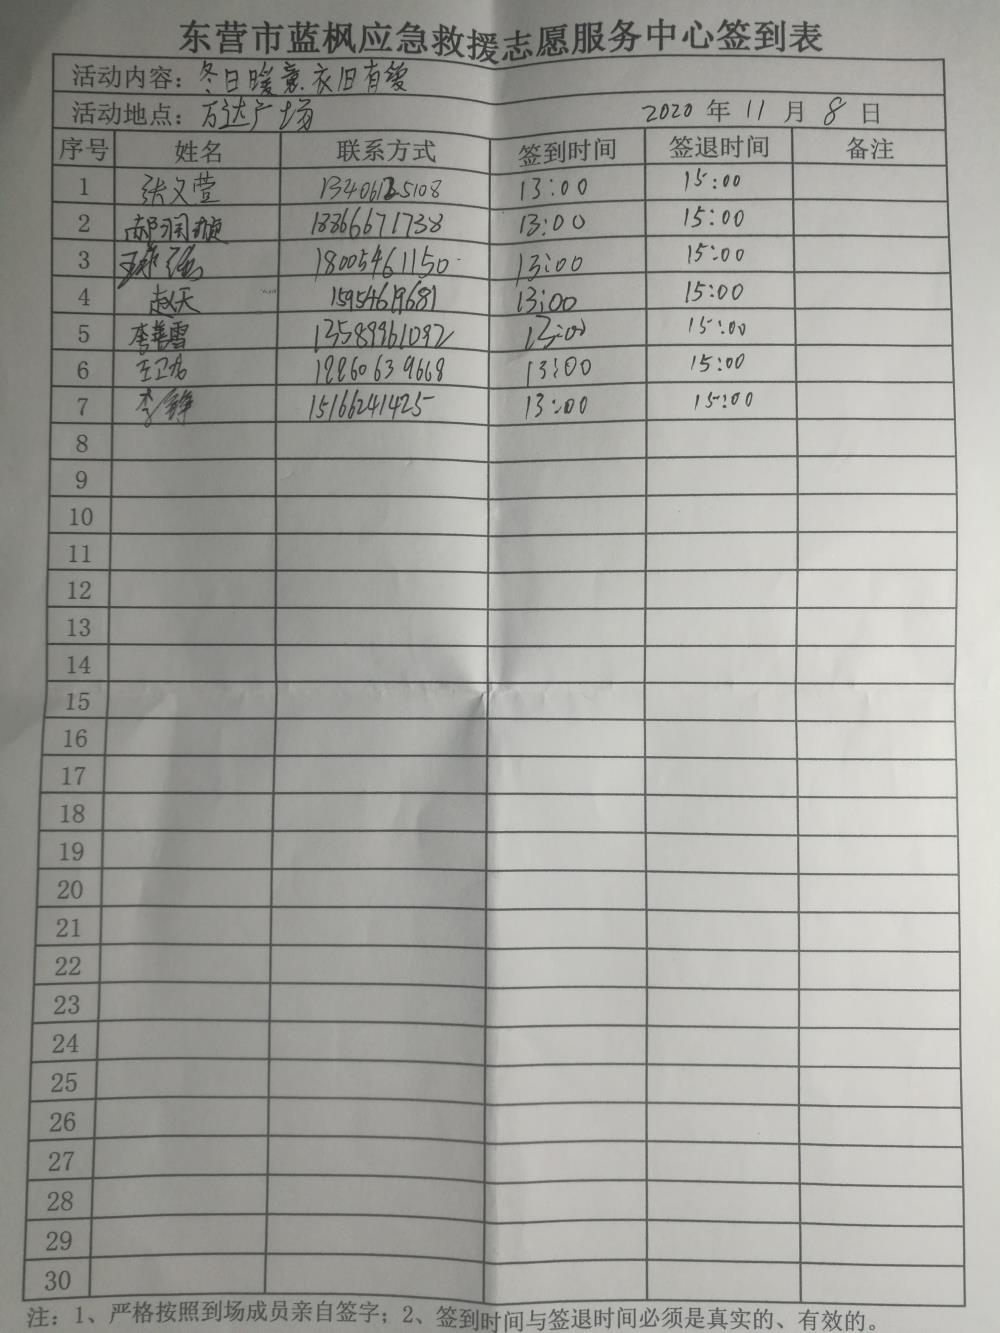 东营市蓝枫应急救援志愿服务中心签到表
活动内容：冬日暖意 衣旧有爱
活动地点：万达广场 2020 年 11 月 8 日
序号 姓名 联系方式 签到时间 签退时间 备注
1 张文萱 13406125108 13:00 15:00
2 郝润璇 18866671738 13:00 15:00
3 18005461150 13:00 15:00
4 赵天 15954619681 13:00 15:00
5 李善雪 13589961092 13:00 15:00
6 王卫 18860639668 13:00 15:00
7 李铮 15166241425 13:00 15:00
8
9
10
11
12
13
14
15
16
17
18
19
20
21
22
23
24
25
26
27
28
29
30
注：1、严格按照到场成员亲自签字；2、签到时间与签退时间必须是真实的、有效的。